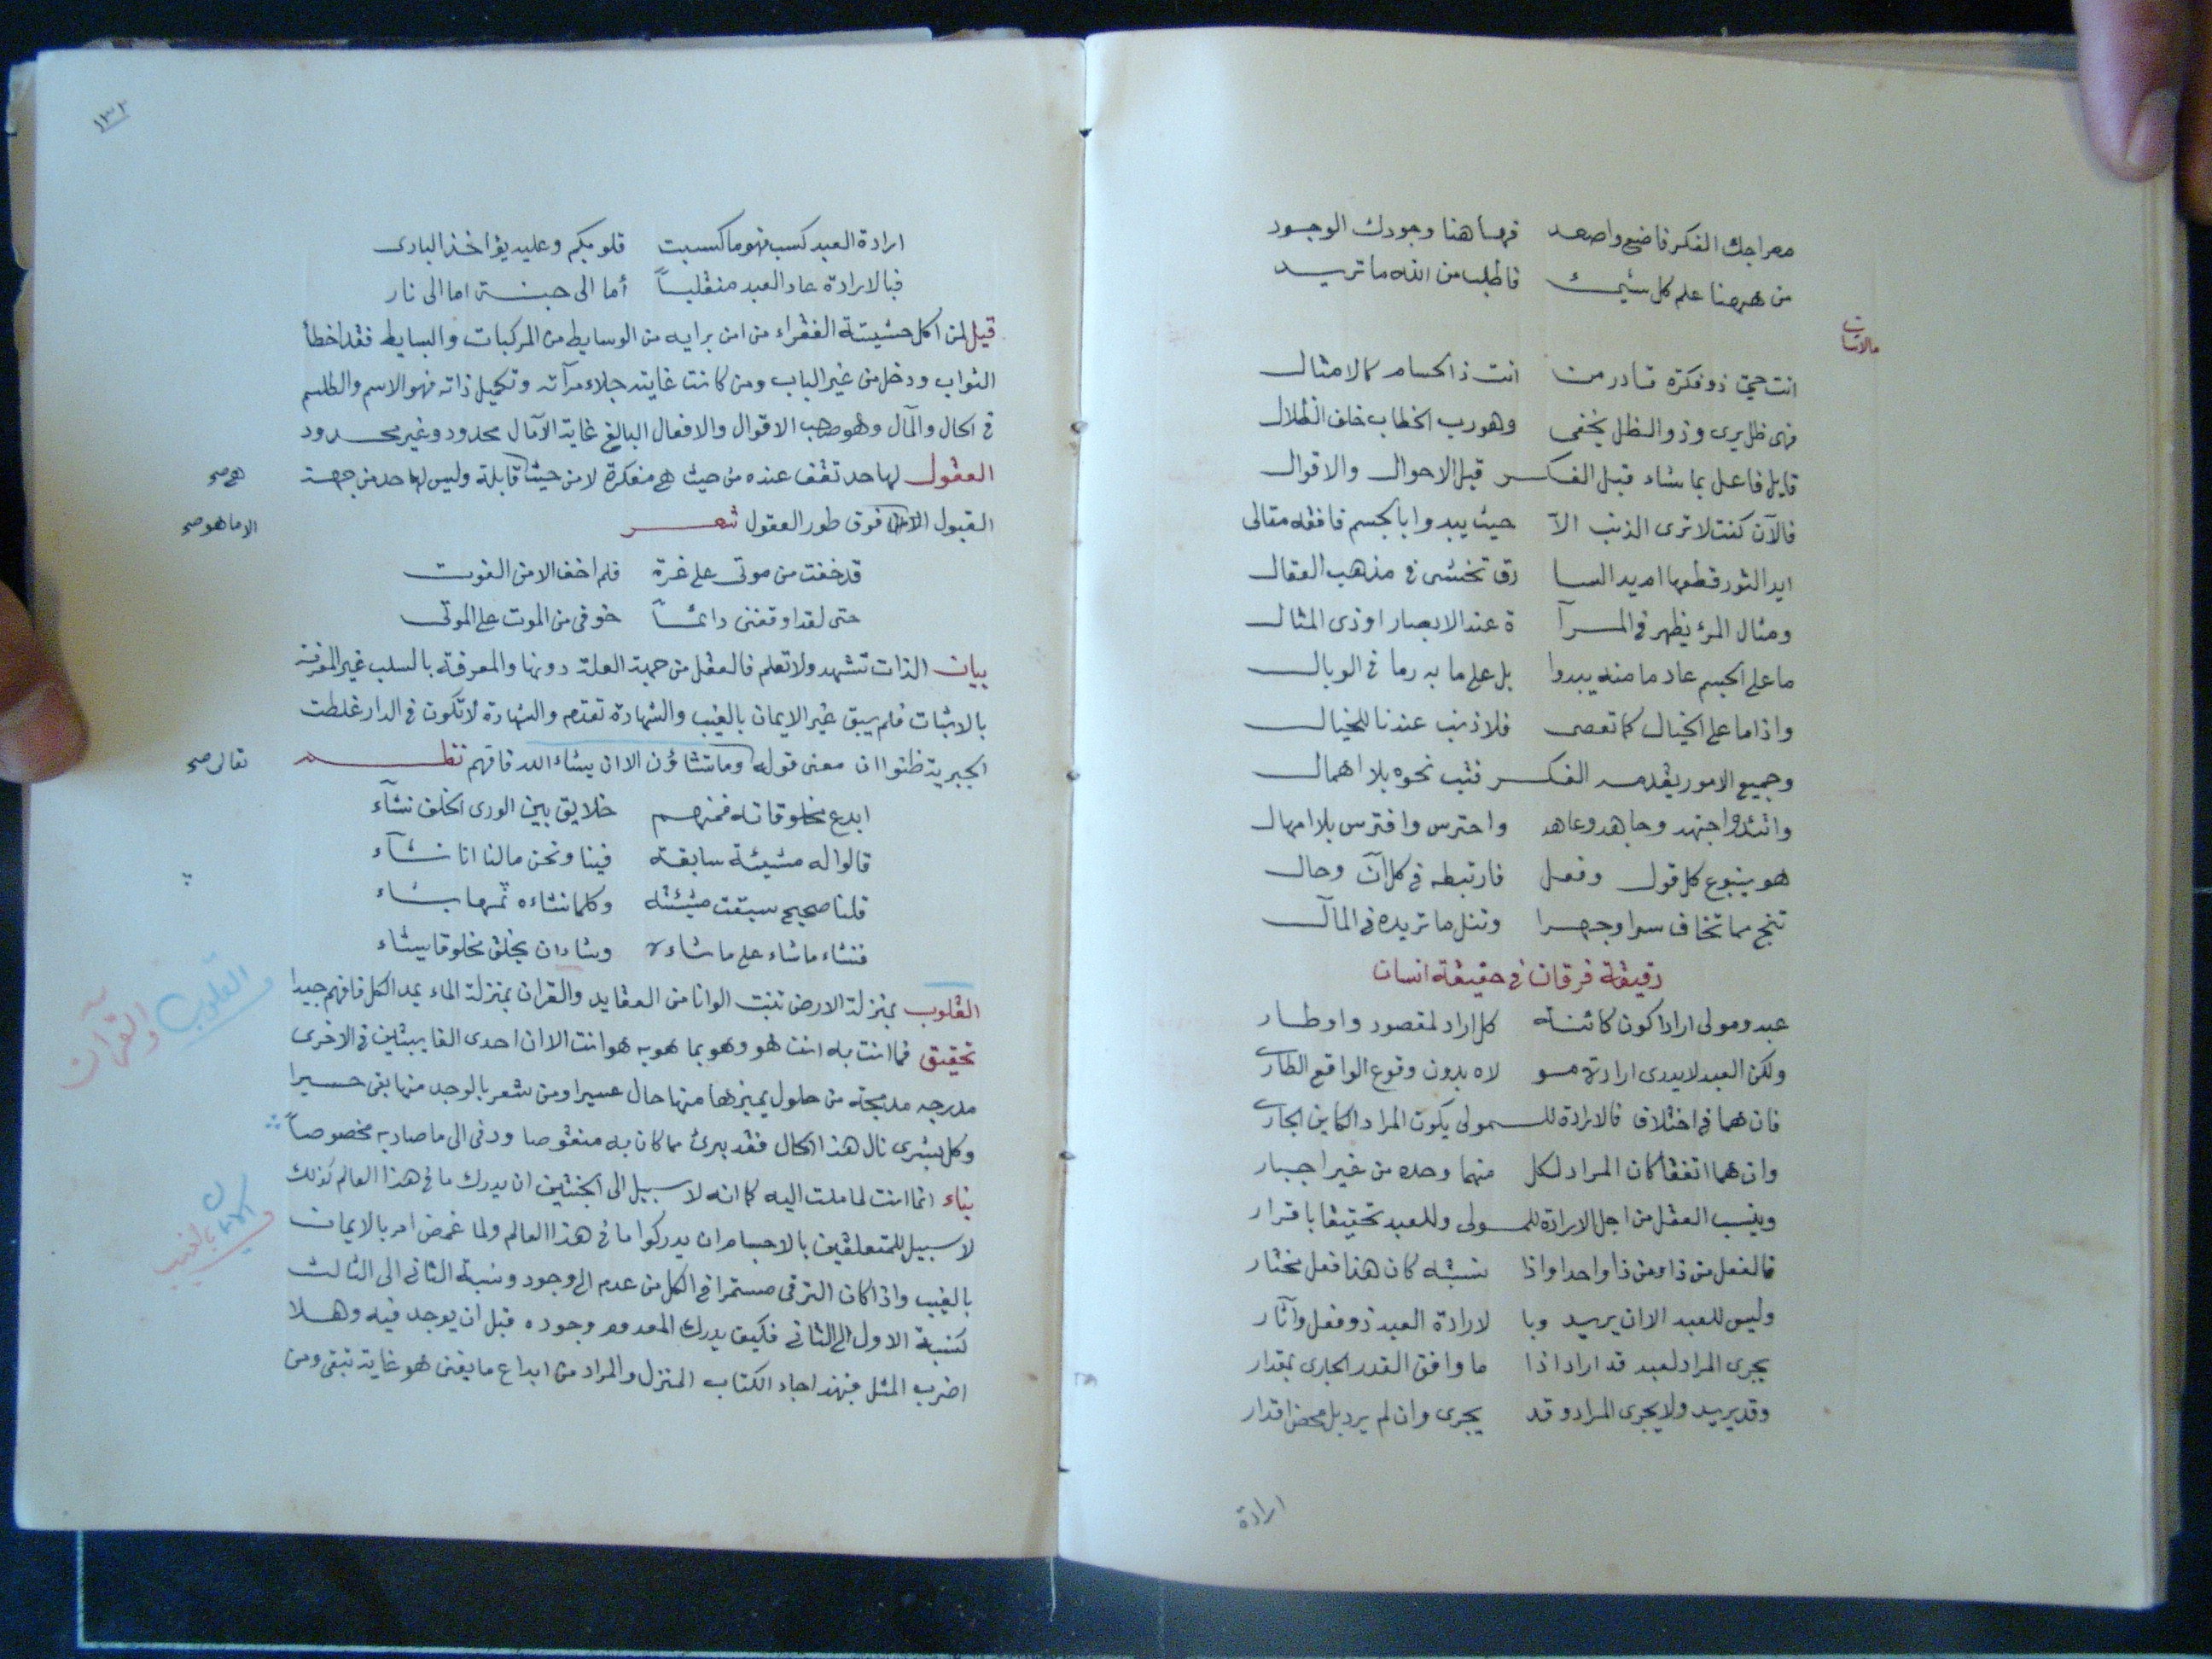 معراجك الفكر فاضع واصعد فمهاهنا وجودك الوجود
من ههنا علم كل شيئ فاطلب من الله ما تريد
انت حي ذو فكرة قادر من انت ذا كسام كالامثال
فهى ظل يرى وذو الظل يخفى وهو رب الخطاب خلف الظلال
قايل فاعل بما شاء قبل الفكر قبل الاحوال والاقوال
فالآن كنت لا ترى الذنب الا حيث يبدوا بالجسم فافقه مقالى
ايد الثور قطعها ام يد السا رق تخشى فى مذهب العقال
ومثال المرئ يظهر فى المرآ ة عند الابصار او ذى المثال
ما على الجسم عاد ما منه يبدوا بل على ما به رما فى الوبال
واذا ما على الخيال كما تعصى فلا ذنب عندنا للخيال
وجميع الامور يقدمه الفكر فثب نحوه بلا اهمال
واتئد واجتهد وجاهد وعاهد واحترس وافترس بلا امهال
هو ينبوع كل قول وفعل فارتبطه فى كل آن وحال
تنج مما تخاف سرا وجهرا وتنل ما تريده فى المآل
رقيقة فرقان فى حقيقة انسان
عبد ومولى ارادا كون كائنة كل اراد لمقصود واوطار
ولكن العبد لا يدرى ارادة مو لاه بدون وقوع الواقع الطارى
فان هما فى اختلاف فالارادة للمولى يكون المراد الكاين الجارى
وان هما اتفقا كان المراد لكل منهما وحده من غير اجبار
وينسب العقل من اجل الارادة للمولى وللعبد تحقيقا باقرار
فالفعل من ذا ومن ذا واحد واذا نسبته كان هذا فعل مختار
وليس للعبد الا ان يريد وبا لارادة العبد ذو فعل وآثار
يجرى المراد لعبد قد اراد اذا ما وافق القدر الجارى بمقدار
وقد يريد ولا يجرى المراد وقد يجرى وان لم يرد بل محض اقدار
ارادة
١٣٢
ارادة العبد كسب فهو ما كسبت قلوبكم وعليه يؤاخذ البارى
فبالارادة عاد العبد منقلباً أما الى جنة اما الى نار
قيل لمن اكل حشيشة الفقراء من امن برايه من الوسايط من المركبات والبسايط فقد اخطأ
الثواب ودخل من غير الباب ومن كانت غايته جلاء مرآته وتكميل ذاته فهو الاسم والطلسم
فى الحال والمآل وهو صاحب الاقوال والافعال البالغ غاية الآمال محدود وغير محدود
العقول لها حد تقف عنده من حيث هى مفكرة لا من حيث قابلة وليس لها حد من جهة
هى صح
القبول الا من فوق طور العقول شعر
الا ما هو صح
قد خفت من موتى على غرة فلم اخف الا من الفوت
حتى لقد اوقفنى دائماً خوفى من الموت على الموتى
بيان الذات تشهد ولا تعلم فالعقل من جهة العلة دونها والمعرفة بالسلب غير المعرفة
بالاثبات فلم يبق غير الايمان بالغيب والشهادة تقدم والشهادة لا تكون فى الدار غلطت
الجبرية ظنوا ان معنى قوله وما تشاؤن الا ان يشاء الله فافهم نظم
تعالى صح
ابدع مخلوقاته فمنهم خلايق بين الورى الخلق نشآء
قالوا له مشيئة سابقة فينا ونحن مالنا انا نشآء
قلنا صحيح سبقت مشيئته وكلما نشاءه ثمها يشاء
فنشاء ما شاء على ما شاءه وشاء ان يخلق مخلوقا يشاء
القلوب بمنزلة الارض تنبت الوانا من العقايد والقران بمنزلة الماء يمد الكل فافهم جيدا
القلوب والقرآن
تحقيق فما انت به انت هو وهو بما هو به هو انت الا ان احدى الغايبتين فى الاخرى
مدرجه مدمجة من حلول يميزها منها حال عسيرا ومن شعر بالوجد منها بقى حسيرا
وكل بشرى نال هذا الحال فقد برئ مما كان به منقوصا ورقى الى ما صار به مخصوصاً
بناء انما انت لما ملت اليه كما انه لا سبيل الى الجنتين ان يدرك ما فى هذا العالم كذلك
لا سبيل للمتعلقين بالاجسام ان يدركوا ما فى هذا العالم ولما غمض امر بالايمان
الايمان بالغيب
بالغيب واذا كان الترقى مستمرا فى الكل من عدم الى وجود ونسبة الثانى الى الثالث
كنسبة الاول الى الثانى فكيف يدرك المعدوم وجوده قبل ان يوجد فيه وهلا
اضرب المثل فبهذا جاء الكتاب المنزل والمراد من ابداع ما يفنى هو غاية تبقى ومن